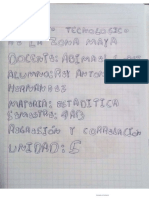 TECNOLOGICO
DE LA ZONA MAYA
DOCENTE: ABIMAEL
ALUMNO: ANTONIO
HERNANDEZ
MATERIA: ESTADITICA
SEMESTRE: 4AD
REGRESIÓN Y CORRELACIÓN
UNIDAD: 5